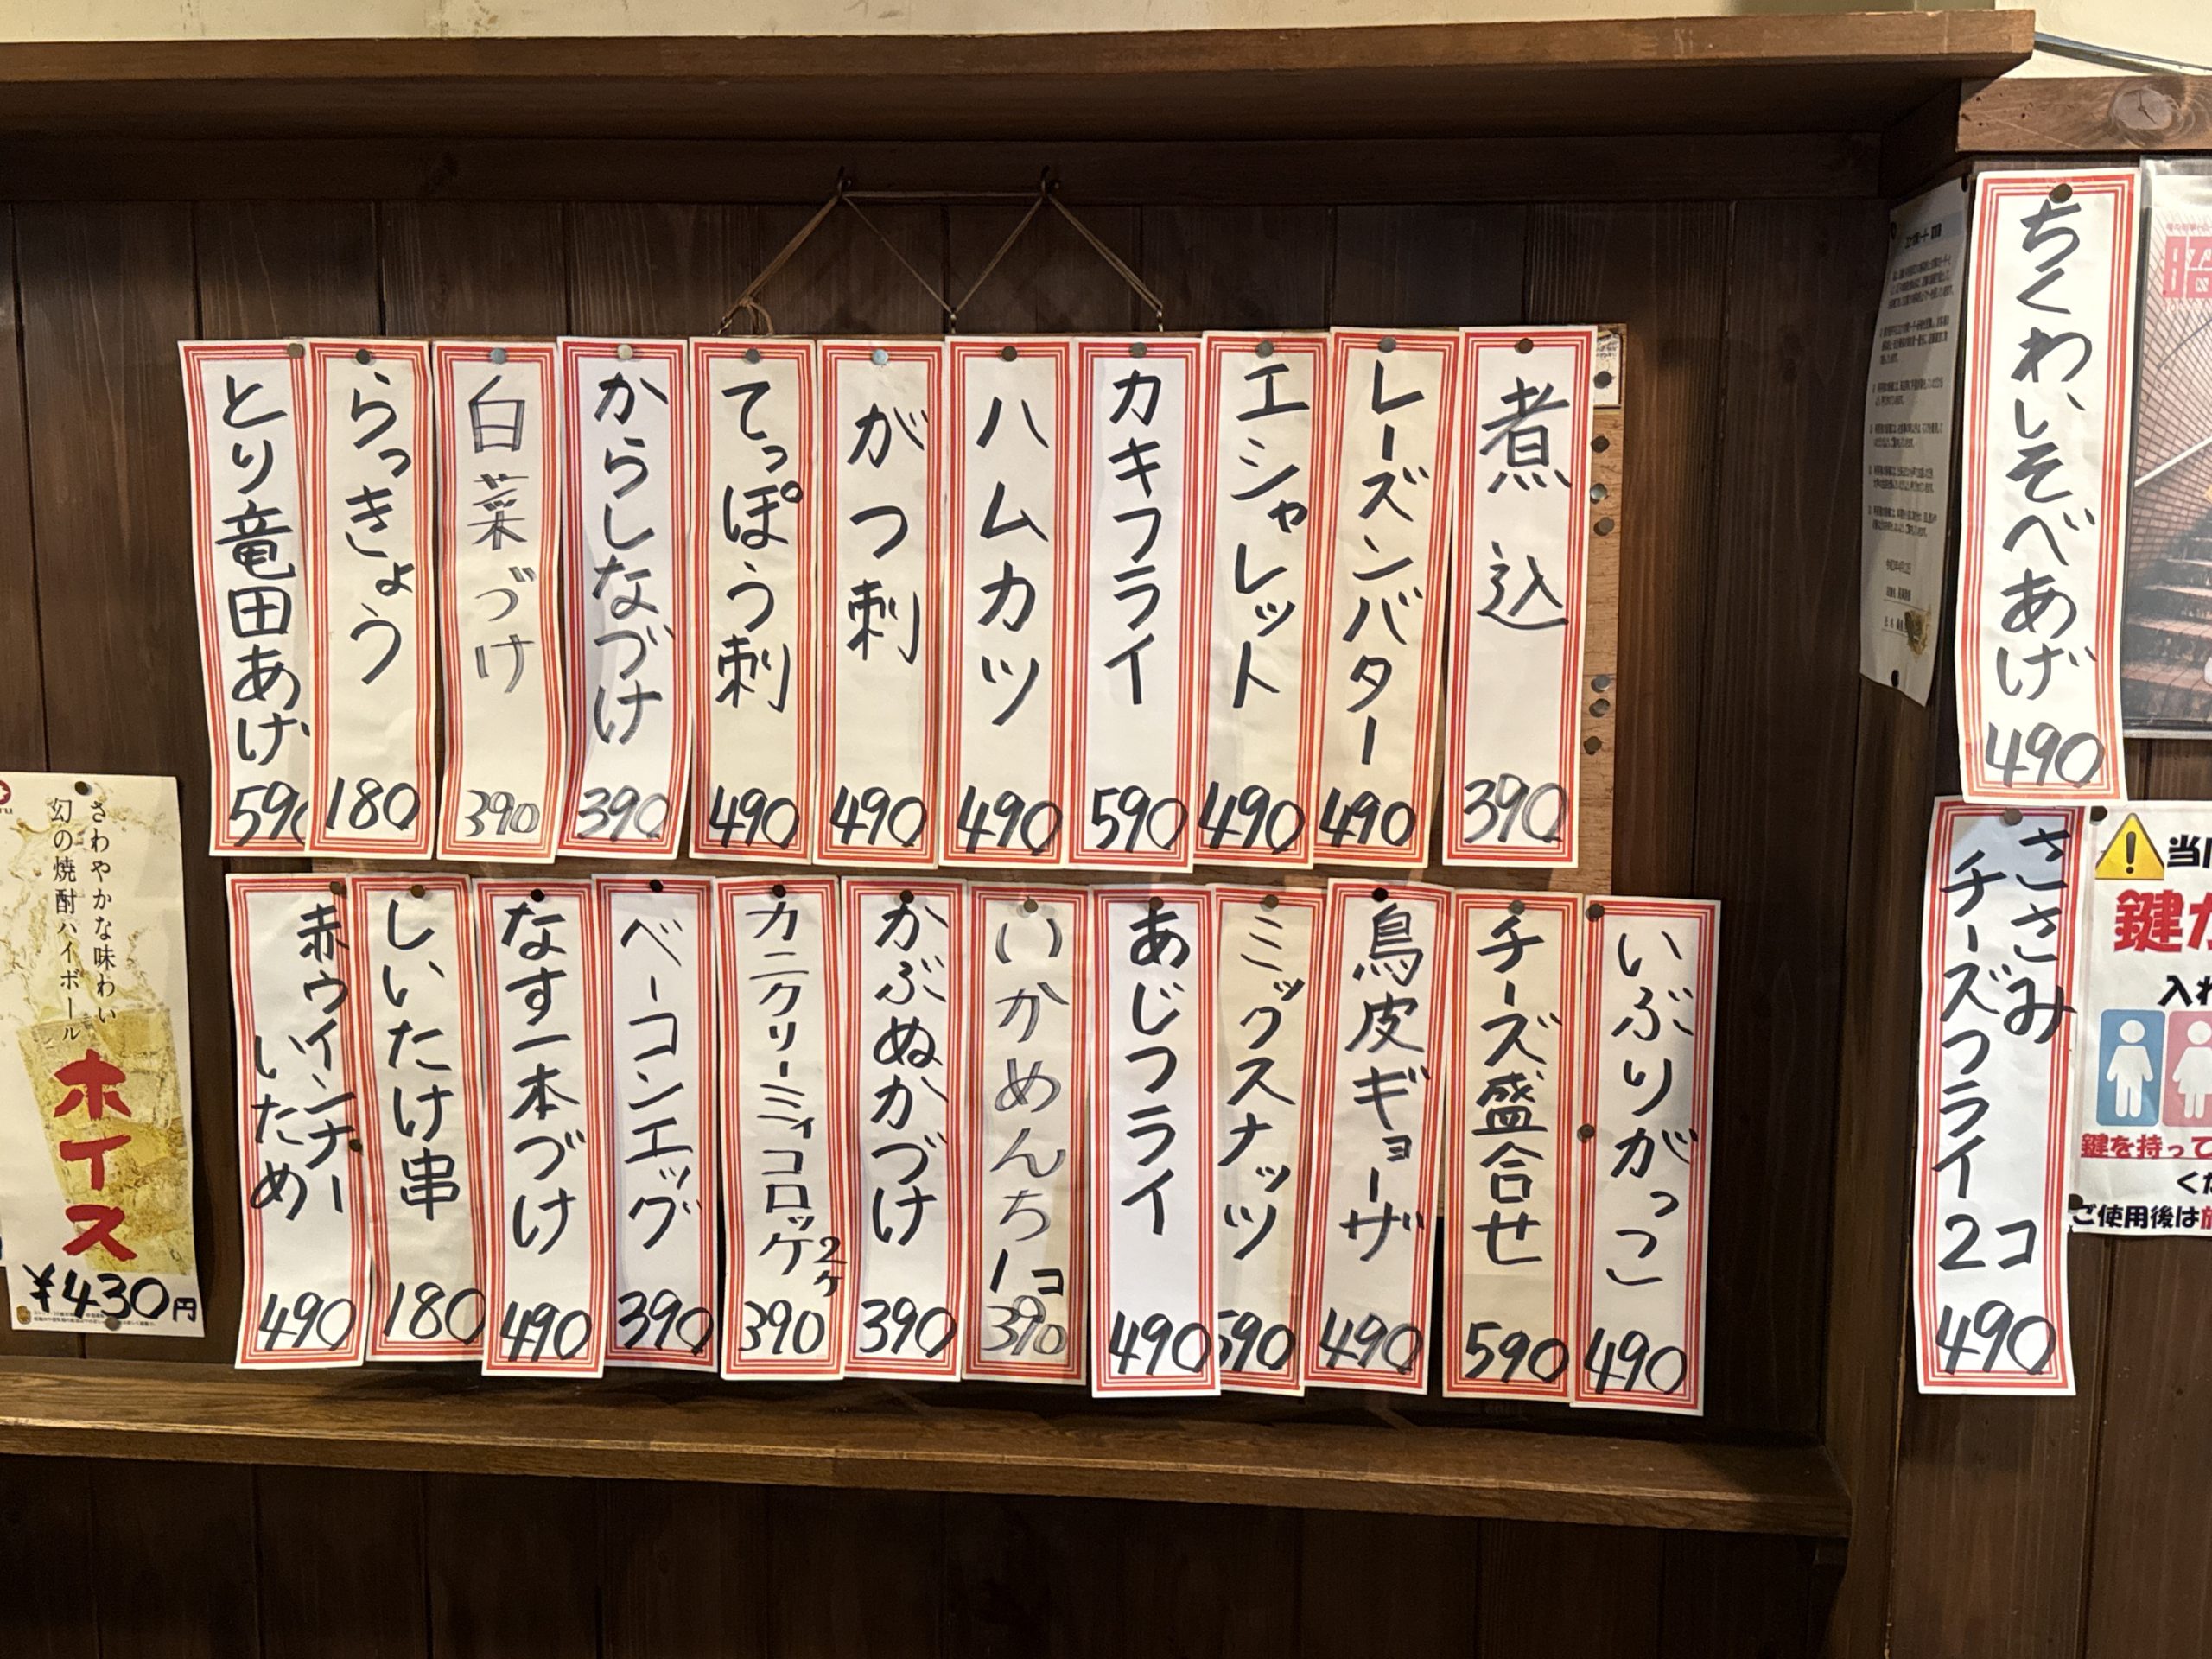 煮込
390
レーズンバター
490
エシャレット
490
カキフライ
590
ハムカツ
490
がつ刺
490
てっぽう刺
490
からしなづけ
390
白菜づけ
390
らっきょう
180
とり竜田あげ
590
いぶりがっこ
490
チーズ盛合せ
590
鳥皮ギョーザ
490
ミックスナッツ
590
あじフライ
490
いかめんち
1コ
390
かぶぬかづけ
390
カニクリーミィコロッケ
2ヶ
390
ベーコンエッグ
390
なす一本づけ
490
しいたけ串
180
赤ウインナー
いため
490
ちくわいそべあげ
490
ささみ
チーズフライ2コ
490
さわやかな味わい
幻の焼酎ハイボール
ホイス
¥430円
鍵を持って
ご使用後は